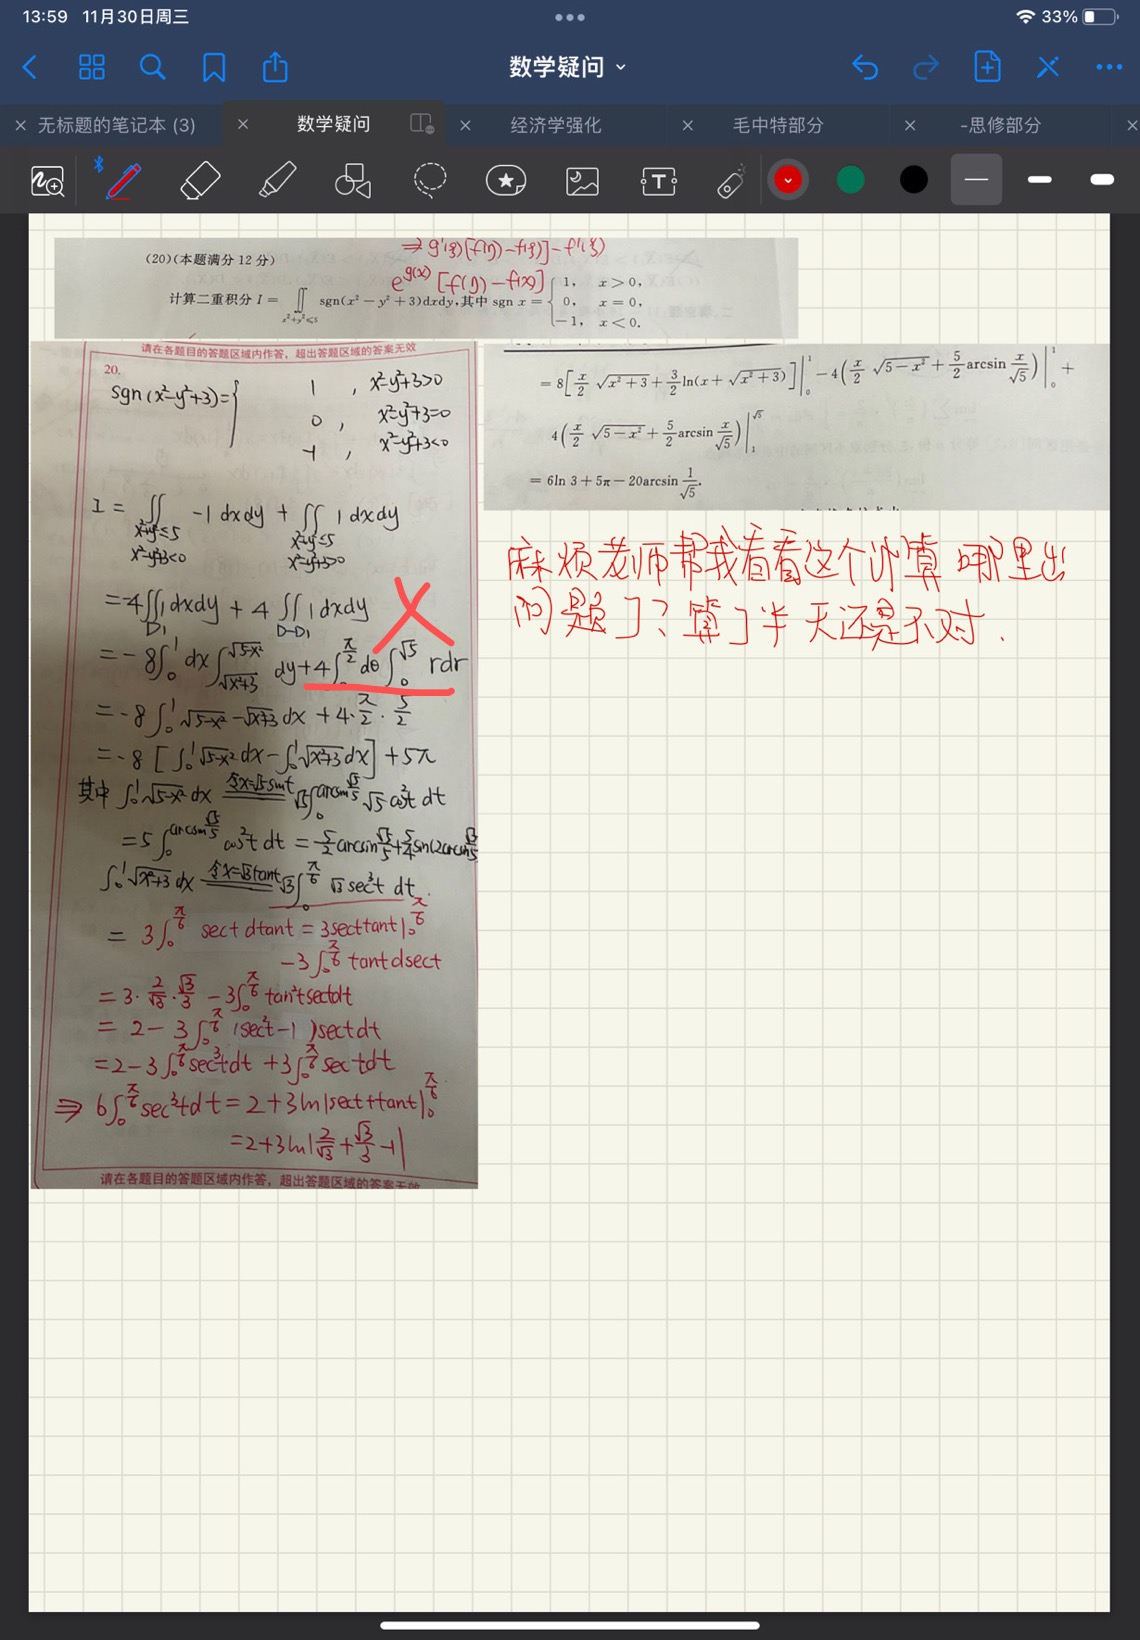 13:59 11月30日周三
33%
数学疑问
无标题的笔记本 (3)
数学疑问
经济学强化
毛中特部分
-思修部分
(20)(本题满分 12 分)
⇒ g'(ξ)[f(1)-f(ξ)]-f'(ξ)
e^{g(x)} [f(1)-f(x)]
计算二重积分 I = ∬_{x²+y²≤5} sgn(x² - y² + 3)dxdy,其中 sgn x = { 1, x > 0,
0, x = 0,
-1, x < 0.
请在各题目的答题区域内作答，超出答题区域的答案无效
20.
sgn(x²-y²+3)={ 1 , x²-y²+3>0
0 , x²-y²+3=0
-1 , x²-y²+3<0
I = ∬_{x²+y²≤5, x²-y²+3<0} -1 dxdy + ∬_{x²+y²≤5, x²-y²+3>0} 1 dxdy
=-4∬_{D₁} 1dxdy + 4 ∬_{D-D₁} 1dxdy
= -8∫₀¹ dx ∫_{√(x²+3)}^{√(5-x²)} dy + 4∫₀^{π/2} dθ ∫₀^{√5} rdr
= -8 ∫₀¹ √(5-x²) - √(x²+3) dx + 4·π/2·5/2
= -8 [∫₀¹√(5-x²) dx - ∫₀¹√(x²+3) dx] + 5π
其中 ∫₀¹√(5-x²) dx 令x=√5sint √5∫₀^{arcsin √5/5} √5 cos²t dt
= 5∫₀^{arcsin √5/5} cos²t dt = 5/2 arcsin √5/5 + 5/4 sin(2arcsin √5/5
∫₀¹√(x²+3) dx 令x=√3tant √3∫₀^{π/6} √3 sec³t dt
= 3∫₀^{π/6} sect dtant = 3secttant|₀^{π/6}
-3∫₀^{π/6} tantdsect
= 3·2/√3·√3/3 - 3∫₀^{π/6} tan²tsectdt
= 2 - 3∫₀^{π/6} (sec²t-1)sectdt
= 2-3∫₀^{π/6} sec³tdt + 3∫₀^{π/6} sectdt
⇒ 6∫₀^{π/6} sec³tdt = 2+3ln|sect+tant|₀^{π/6}
= 2+3ln|2/√3 + √3/3 -1|
请在各题目的答题区域内作答，超出答题区域的答案无效
= 8[x/2 √(x²+3) + 3/2 ln(x + √(x²+3))]|₀¹ - 4(x/2 √(5-x²) + 5/2 arcsin x/√5)|₀¹ +
4(x/2 √(5-x²) + 5/2 arcsin x/√5)|₁^{√5}
= 6ln 3 + 5π - 20arcsin 1/√5.
麻烦老师帮我看看这个计算哪里出
问题了？算了半天还是不对.